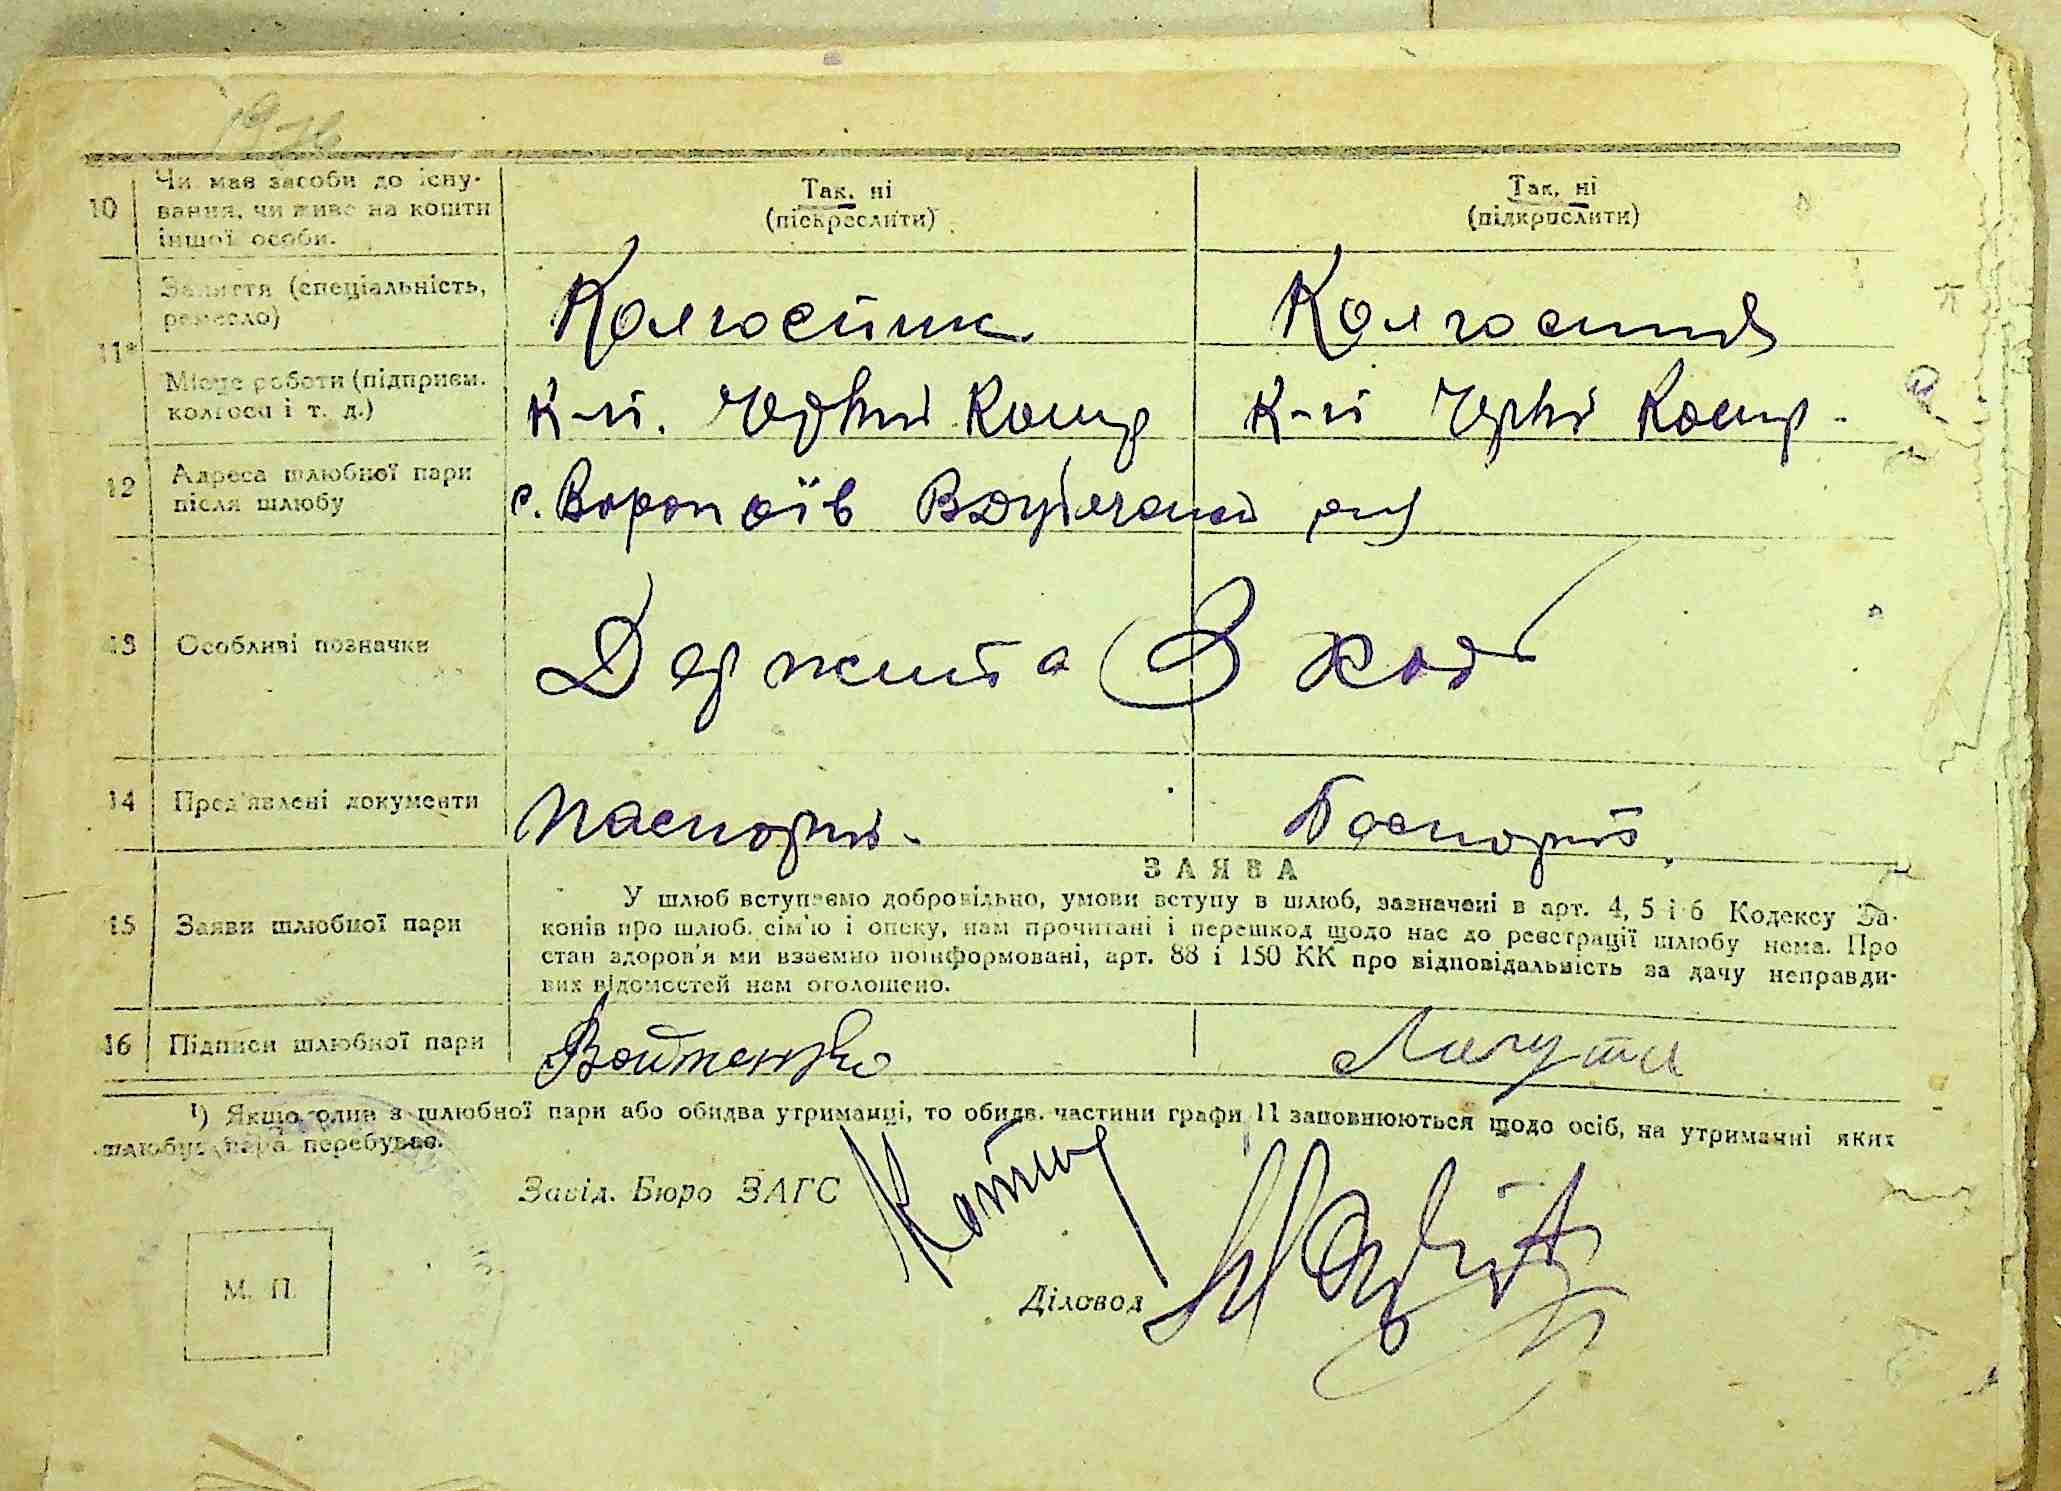 10 Чи має засоби до існу-
вання, чи живе на кошти
іншої особи.
Так, ні
(піскреслити)
Так, ні
(підкрпслити)
11* Заняття (спеціальність,
ремесло)
Колгоспник
Колгоспниця
Місце роботи (підприєм.
колгосп і т. д.)
К-п.
К-п
12 Адреса шлюбної пари
після шлюбу
с. Воропаїв
13 Особливі позначки
14 Пред'явлені документи
Паспорт.
Паспорт.
ЗАЯВА
15 Заяви шлюбної пари
У шлюб вступаємо добровільно, умови вступу в шлюб, зазначені в арт. 4, 5 і 6 Кодексу За-
конів про шлюб. сім'ю і опеку, нам прочитані і перешкод щодо нас до реєстрації шлюбу нема. Про
стан здоров'я ми взаємно поінформовані, арт. 88 і 150 КК про відповідальність за дачу неправди-
вих відомостей нам оголошено.
16 Підписи шлюбної пари
Войтенко
¹) Якщо один з шлюбної пари або обидва утриманці, то обидв. частини графи 11 заповнюються щодо осіб, на утриманні яких
шлюбна пара перебуває.
Завід. Бюро ЗАГС
М. П.
Діловод